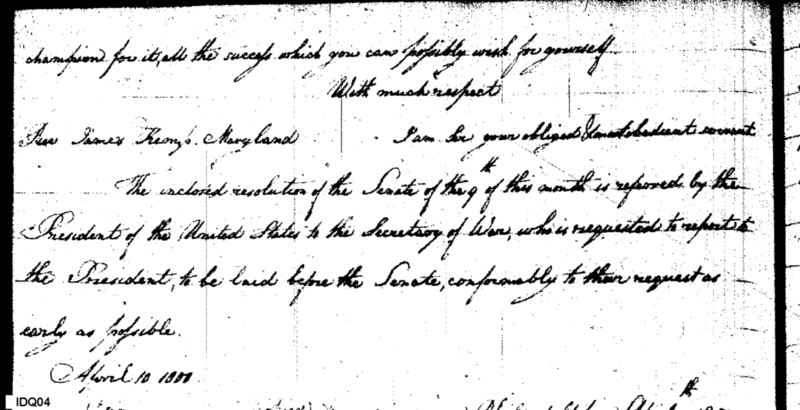 champion for it, all the success which you can possibly wish for yourself.
With much respect
Rev James Kemp. Maryland I am Sir your obliged & most obedient servant
The inclosed resolution of the Senate of the 9th of this month is referred by the
President of the United States to the Secretary of War, who is requested to report to
the President, to be laid before the Senate, conformably to their request as
early as possible.
April 10 1800.
IDQ04